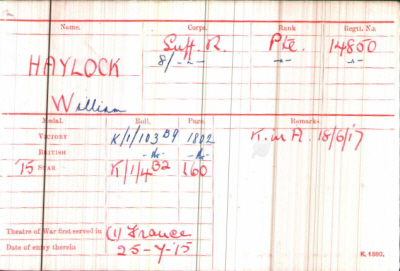 Name. Corps. Rank Regtl. No.
HAYLOCK Suff. R. Pte. 14850
8/ -"- -"- -"-
William
Medal. Roll. Page. Remarks.
VICTORY K/1/103 B9 1802 K. in A. 18/6/17
BRITISH -do- -do-
'15 STAR K/1/4 B2 160
Theatre of War first served in (1) France
Date of entry therein 25-7-15
K. 1380.